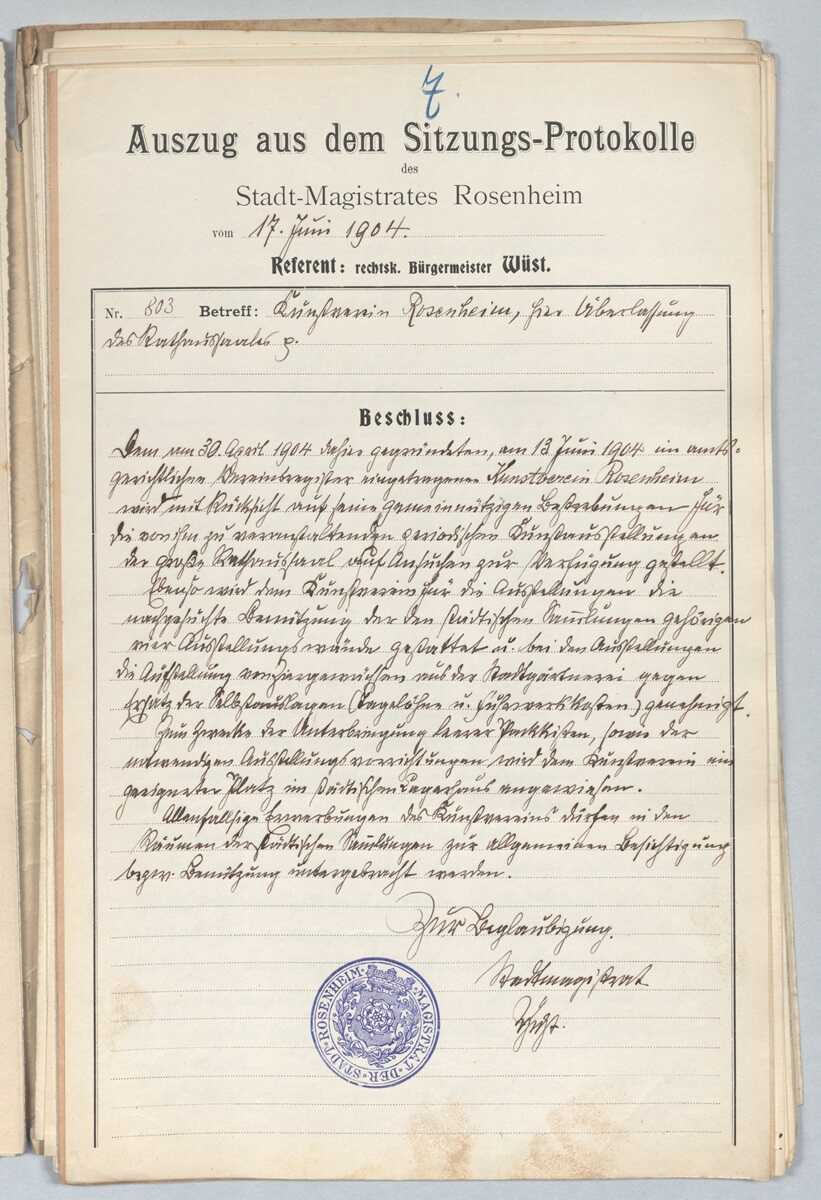 7.
Auszug aus dem Sitzungs-Protokolle
des
Stadt-Magistrates Rosenheim
vom 17. Juni 1904.
Referent: rechtsk. Bürgermeister Wüst.
Nr. 803 Betreff: Kunstverein Rosenheim, hier Überlassung
des Rathaussaales
Beschluss:
Dem am 30. April 1904 dahier gegründeten, am 13. Juni 1904 im amts-
gerichtlichen Vereinsregister eingetragenen Kunstverein Rosenheim
wird mit Rücksicht auf seine gemeinnützigen Bestrebungen für
die von ihm zu veranstaltenden periodischen Kunstausstellungen
der große Rathaussaal auf Ansuchen zur Verfügung gestellt.
Ebenso wird dem Kunstverein für die Ausstellungen die
nachgesuchte Benützung der den städtischen Sammlungen gehörigen
vier Ausstellungswände gestattet u. bei den Ausstellungen
die Aufstellung von Ziergewächsen aus der Stadtgärtnerei gegen
Ersatz der Selbstauslagen (Tagelöhne u. Fuhrwerkkosten) genehmigt.
Zum Zwecke der Unterbringung leerer Packkisten, sowie der
notwendigen Ausstellungsvorrichtungen wird dem Kunstverein ein
geeigneter Platz im städtischen Lagerhaus angewiesen.
Allenfallsige Erwerbungen des Kunstvereins dürfen in den
Räumen der städtischen Sammlungen zur allgemeinen Besichtigung
bezw. Benützung untergebracht werden.
Zur Beglaubigung.
Stadtmagistrat
Wüst.
MAGISTRAT·DER·STADT·ROSENHEIM·